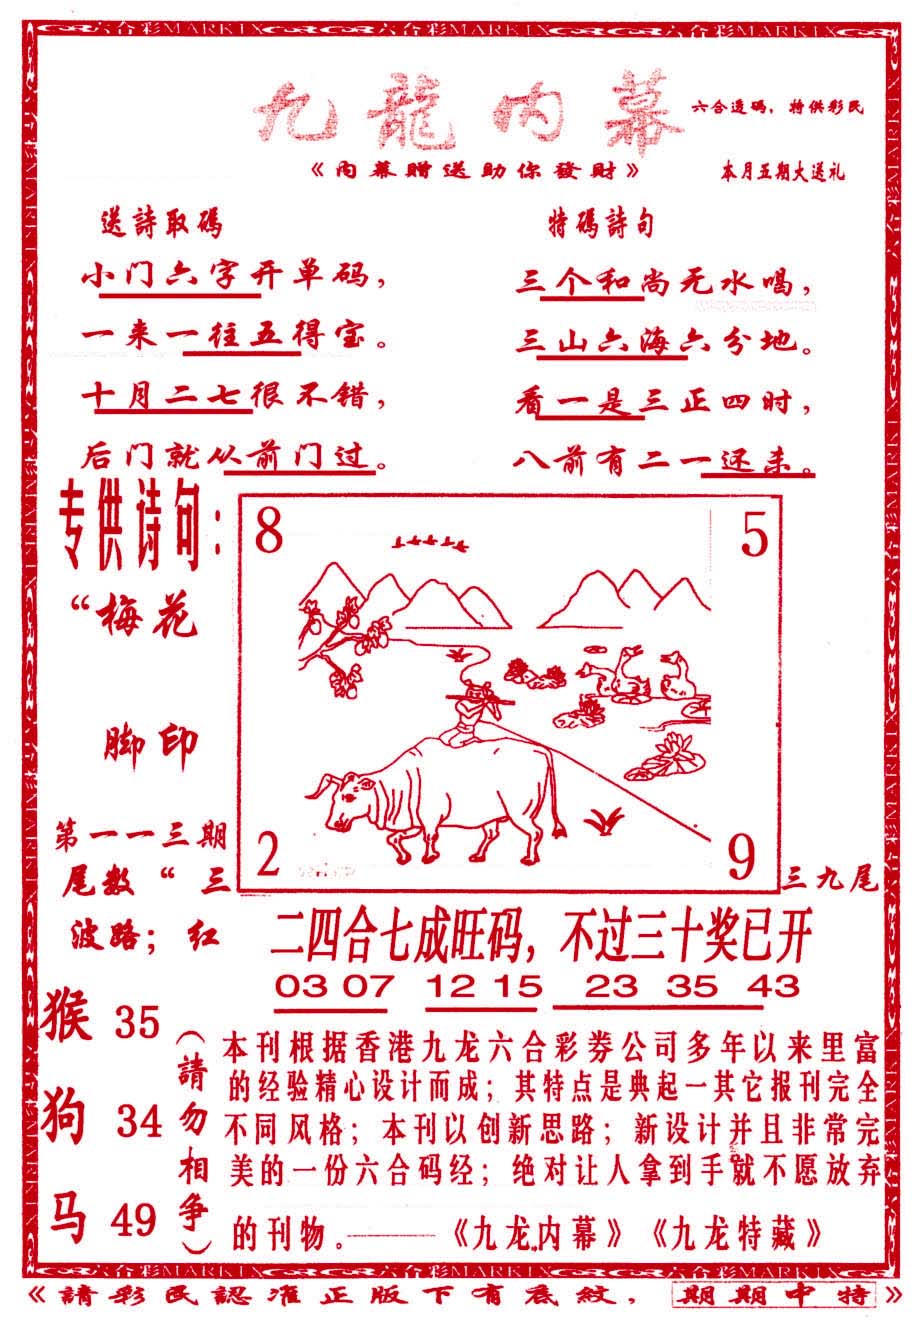 六合彩MARKIX 六合彩MARKIX 六合彩MARKIX
九龍内幕
六合透碼，特供彩民
《内幕贈送助你發財》
本月五期大送礼
送詩取碼
小门六字开单码，
一来一往五得宝。
十月二七很不错，
后门就从前门过。
特碼詩句
三个和尚无水喝，
三山六海六分地。
看一是三正四时，
八前有二一还来。
专供诗句：
“梅花
脚印
第一一三期
尾数“三
波路；红
8
5
2
9
三九尾
二四合七成旺码，不过三十奖已开
03 07 12 15 23 35 43
猴 35
狗 34
马 49
（請勿相争）
本刊根据香港九龙六合彩券公司多年以来里富
的经验精心设计而成；其特点是典起一其它报刊完全
不同风格；本刊以创新思路；新设计并且非常完
美的一份六合码经；绝对让人拿到手就不愿放弃
的刊物。——《九龙内幕》《九龙特藏》
六合彩MARKIX 六合彩MARKIX 六合彩MARKIX
《請彩民認准正版下有底紋，期期中特》